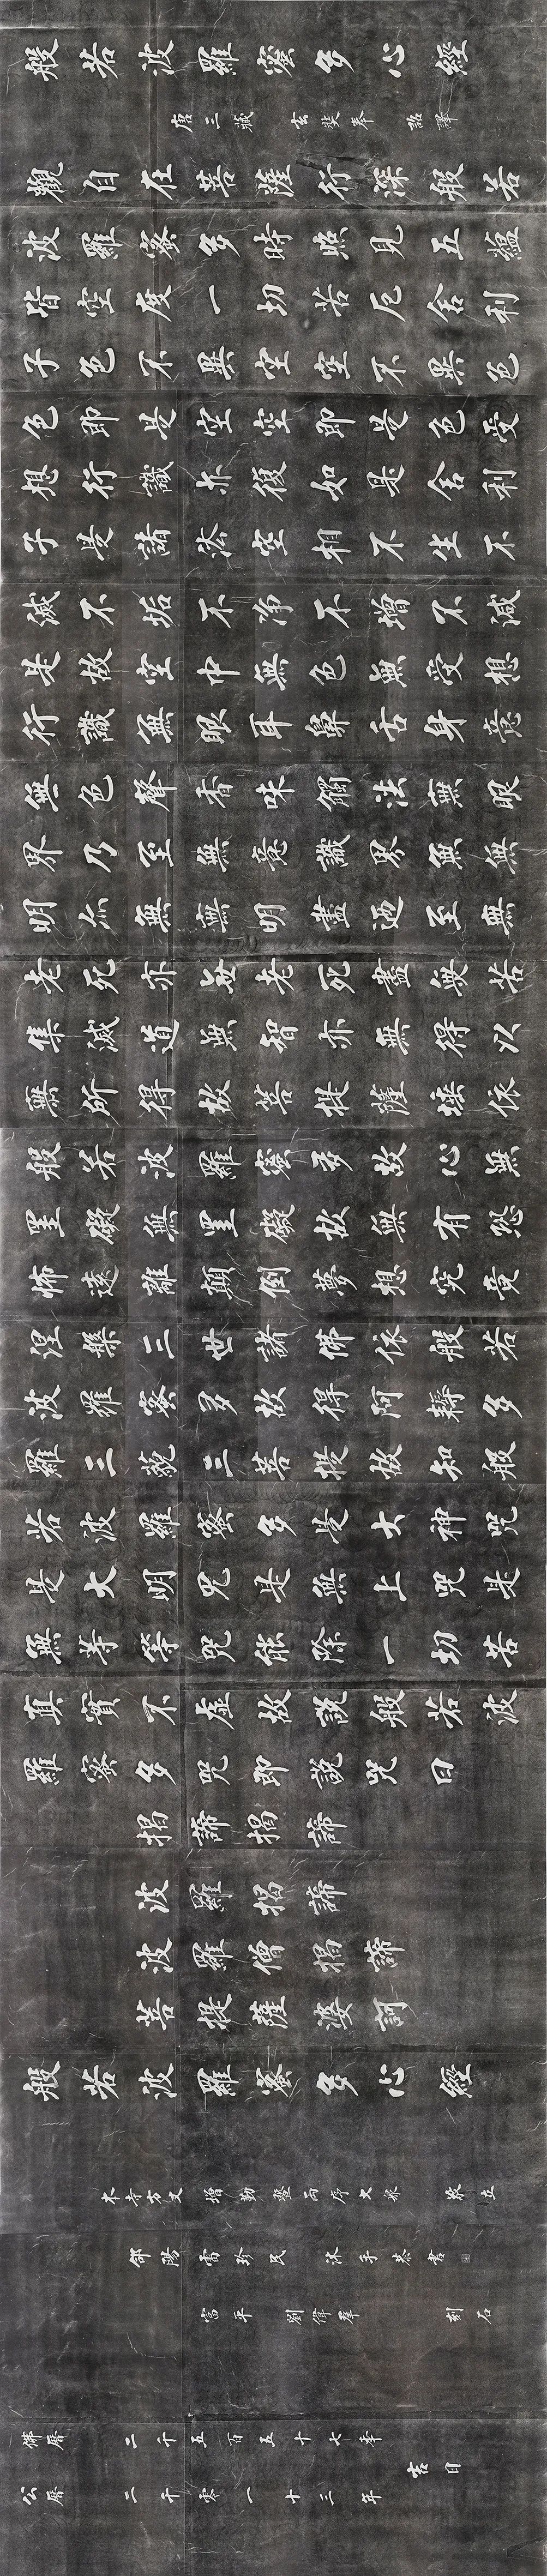 般若波羅蜜多心經
唐三藏 玄奘奉 詔譯
觀自在菩薩行深般若
波羅蜜多時照見五蘊
皆空度一切苦厄舍利
子色不異空空不異色
色即是空空即是色受
想行識亦復如是舍利
子是諸法空相不生不
滅不垢不淨不增不減
是故空中無色無受想
行識無眼耳鼻舌身意
無色聲香味觸法無眼
界乃至無意識界無無
明亦無無明盡迺至無
老死亦無老死盡無苦
集滅道無智亦無得以
無所得故菩提薩埵依
般若波羅蜜多故心無
罣礙無罣礙故無有恐
怖遠離顛倒夢想究竟
涅槃三世諸佛依般若
波羅蜜多故得阿耨多
羅三藐三菩提故知般
若波羅蜜多是大神咒
是大明咒是無上咒是
無等等咒能除一切苦
真實不虛故說般若波
羅蜜多咒即說咒曰
揭諦揭諦
波羅揭諦
波羅僧揭諦
菩提薩婆訶
般若波羅蜜多心經
本寺方丈 增勤暨兩序大眾 敬立
郃陽雷珍民 沐手恭書
富平 劉偉群 刻石
佛曆 二千五百五十七年
吉日
公曆 二千零一十三年